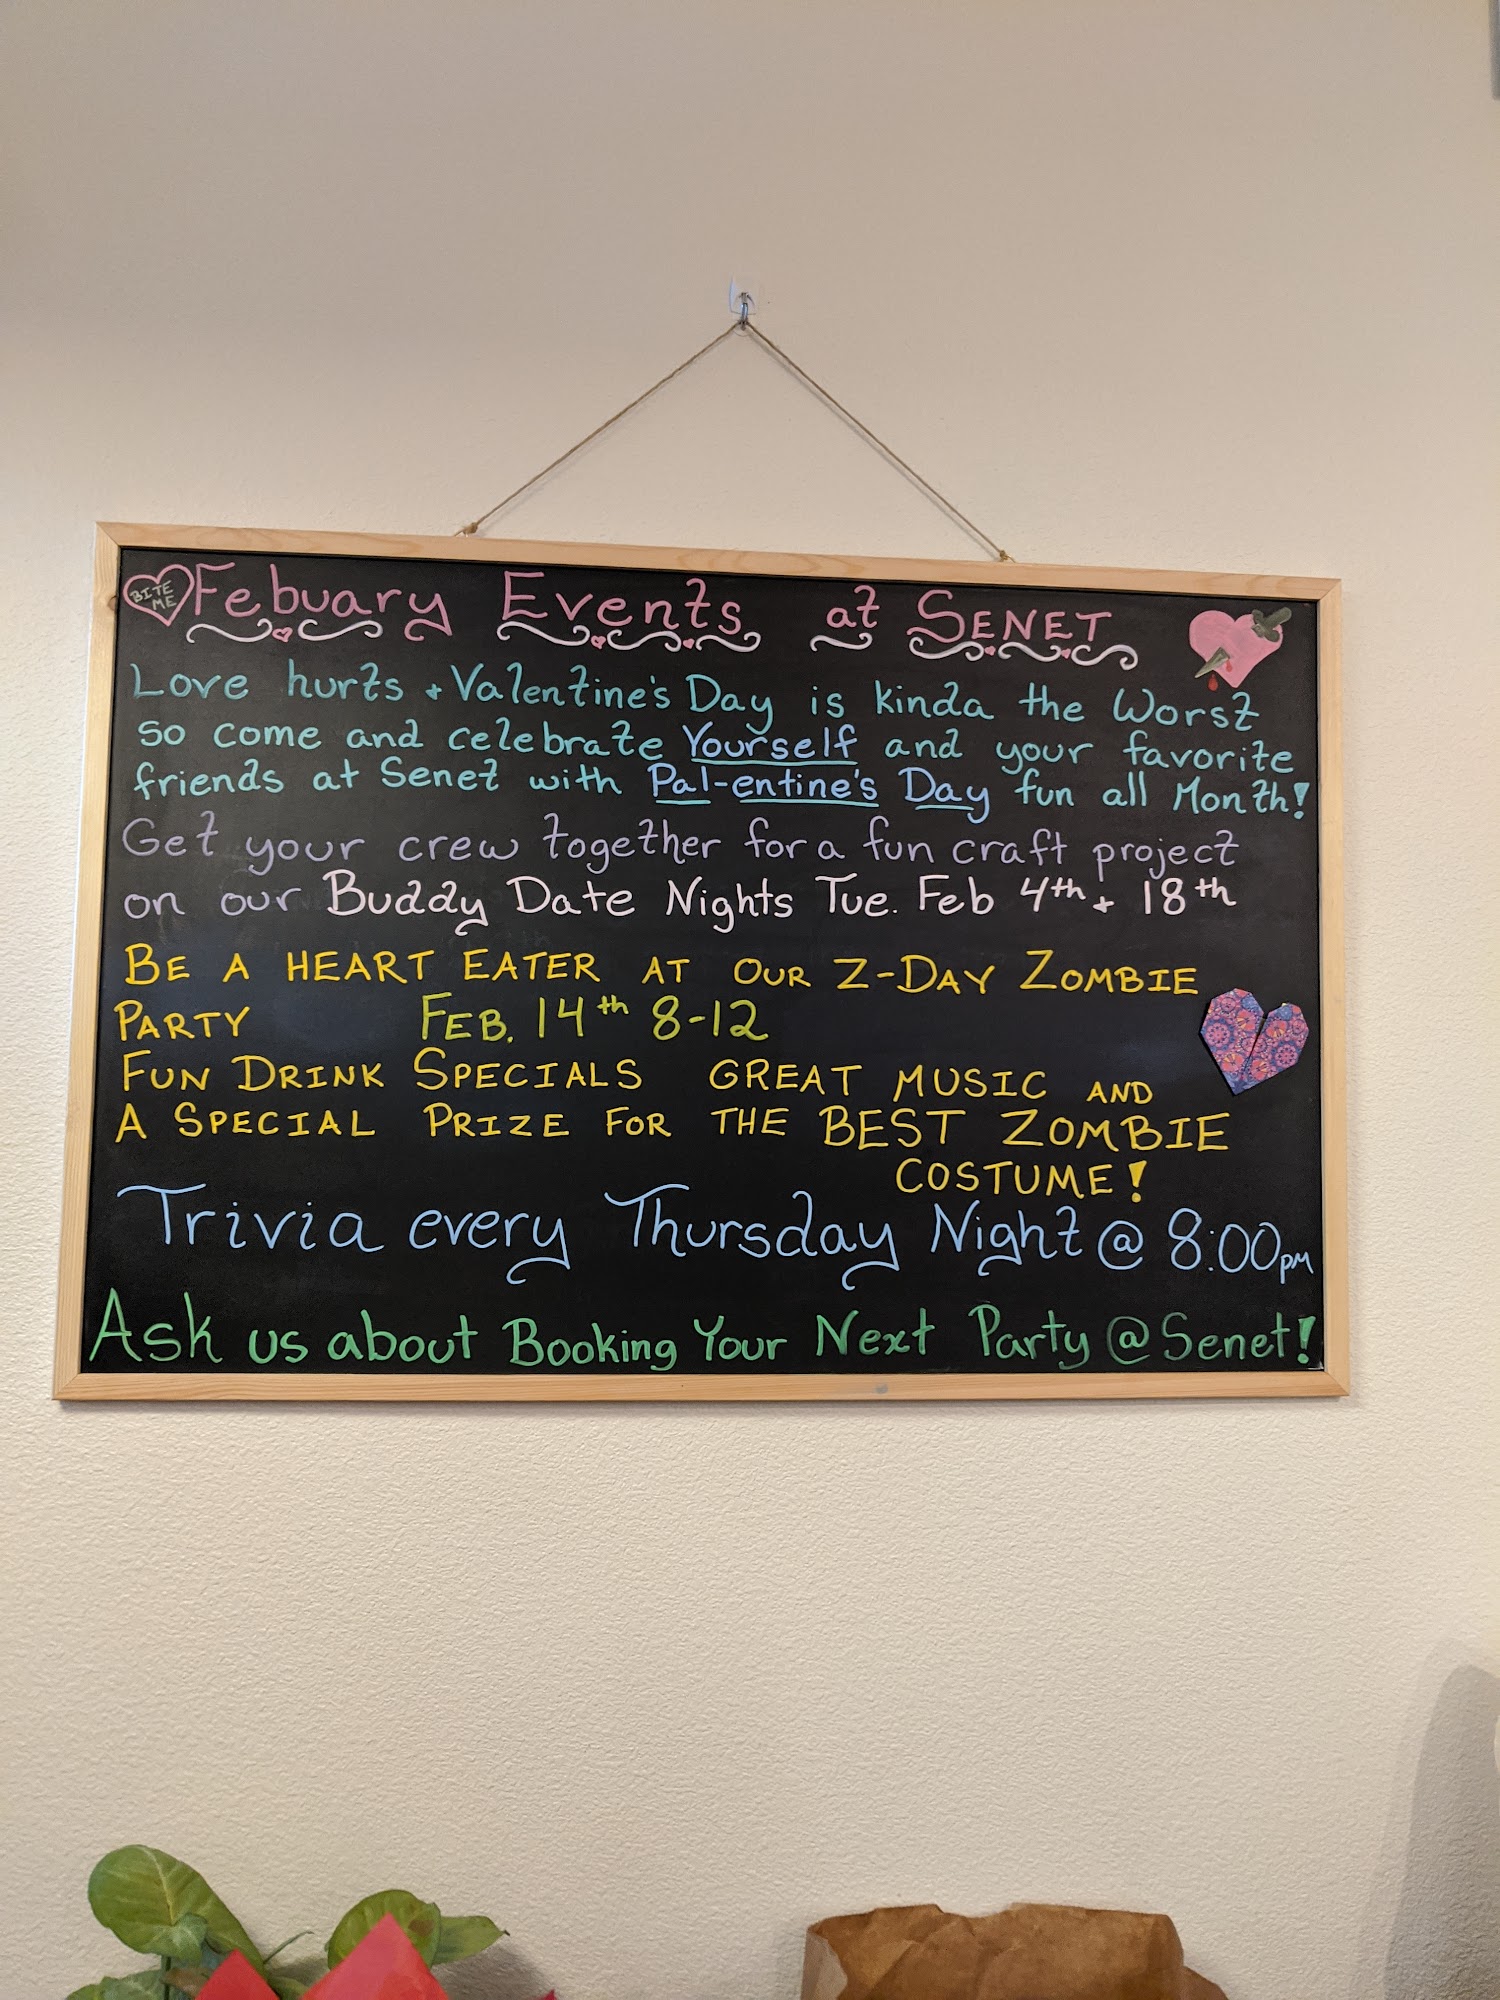 BITE ME
Febuary Events at SENET
Love hurts + Valentine's Day is kinda the Worst
so come and celebrate Yourself and your favorite
friends at Senet with Pal-entine's Day fun all Month!
Get your crew together for a fun craft project
on our Buddy Date Nights Tue. Feb 4th + 18th
BE A HEART EATER AT OUR Z-DAY ZOMBIE
PARTY FEB. 14th 8-12
FUN DRINK SPECIALS GREAT MUSIC AND
A SPECIAL PRIZE FOR THE BEST ZOMBIE
COSTUME!
Trivia every Thursday Night @ 8:00pm
Ask us about Booking Your Next Party @ Senet!